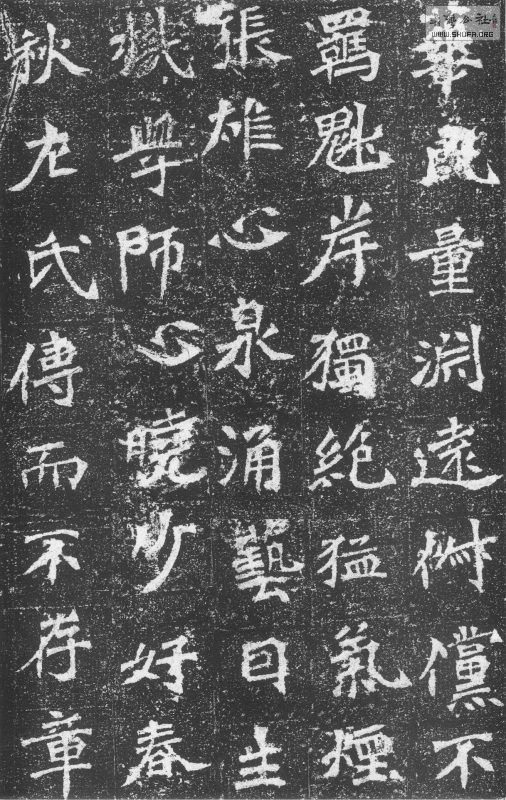 公社
WWW.SHUFA.ORG
華風量淵遠俶儻不
羈魁岸獨絶猛氣煙
張雄心泉涌藝因生
機學師心曉少好春
秋左氏傳而不存章